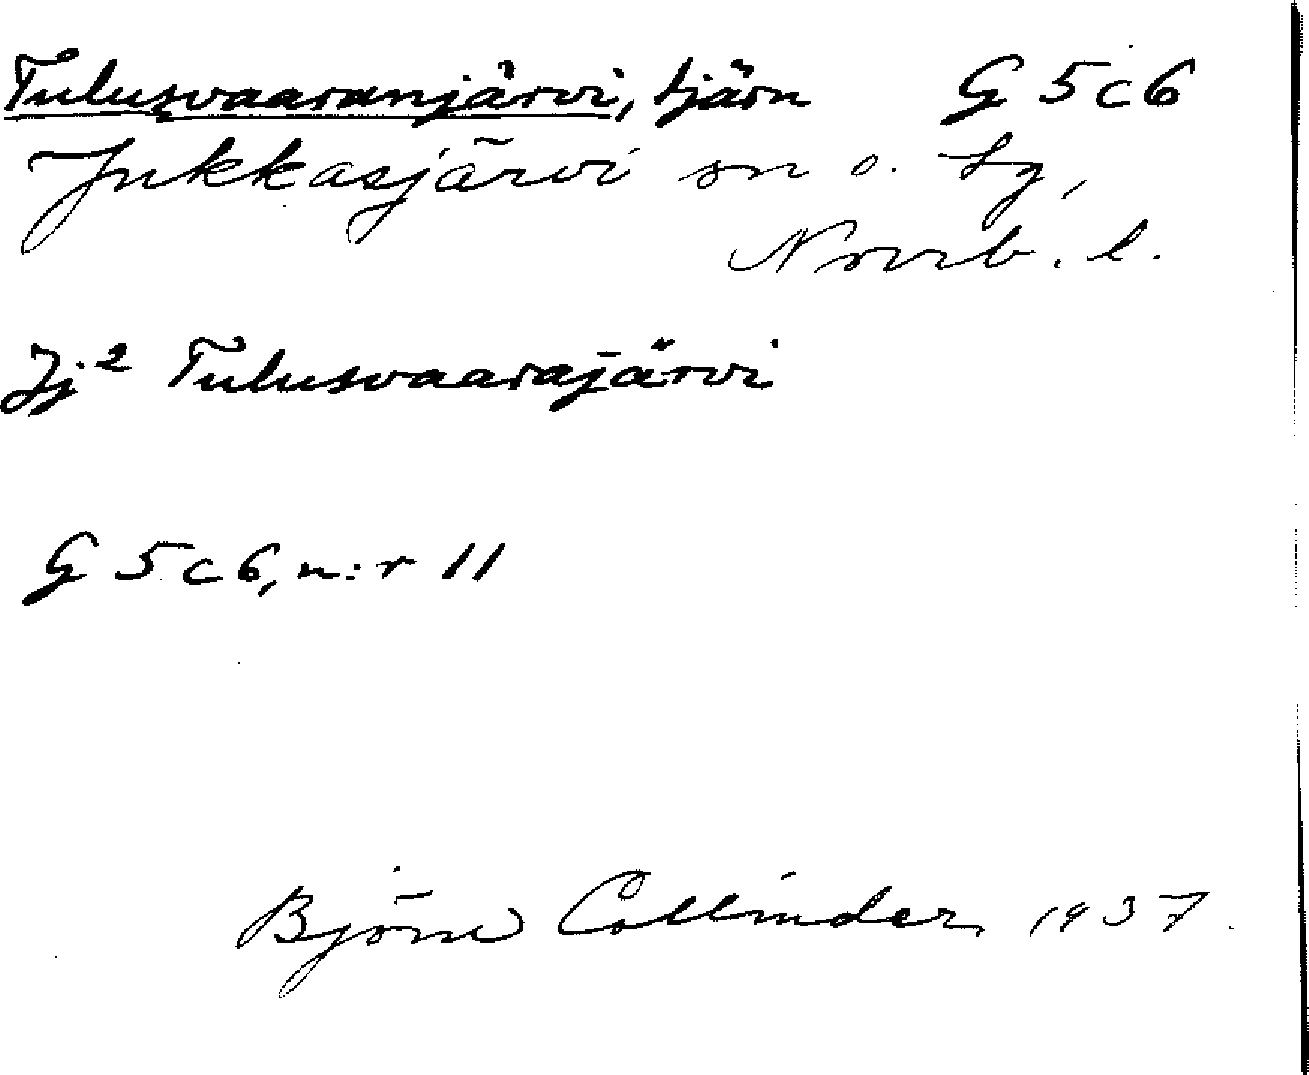 Tulusvaaranjärvi, tjärn G 5 c 6
Jukkasjärvi sn o. tg,
Norrb. l.
Jj² Tulusvaarajärvi
G 5 c 6, n:r 11
Björn Collinder 1937.